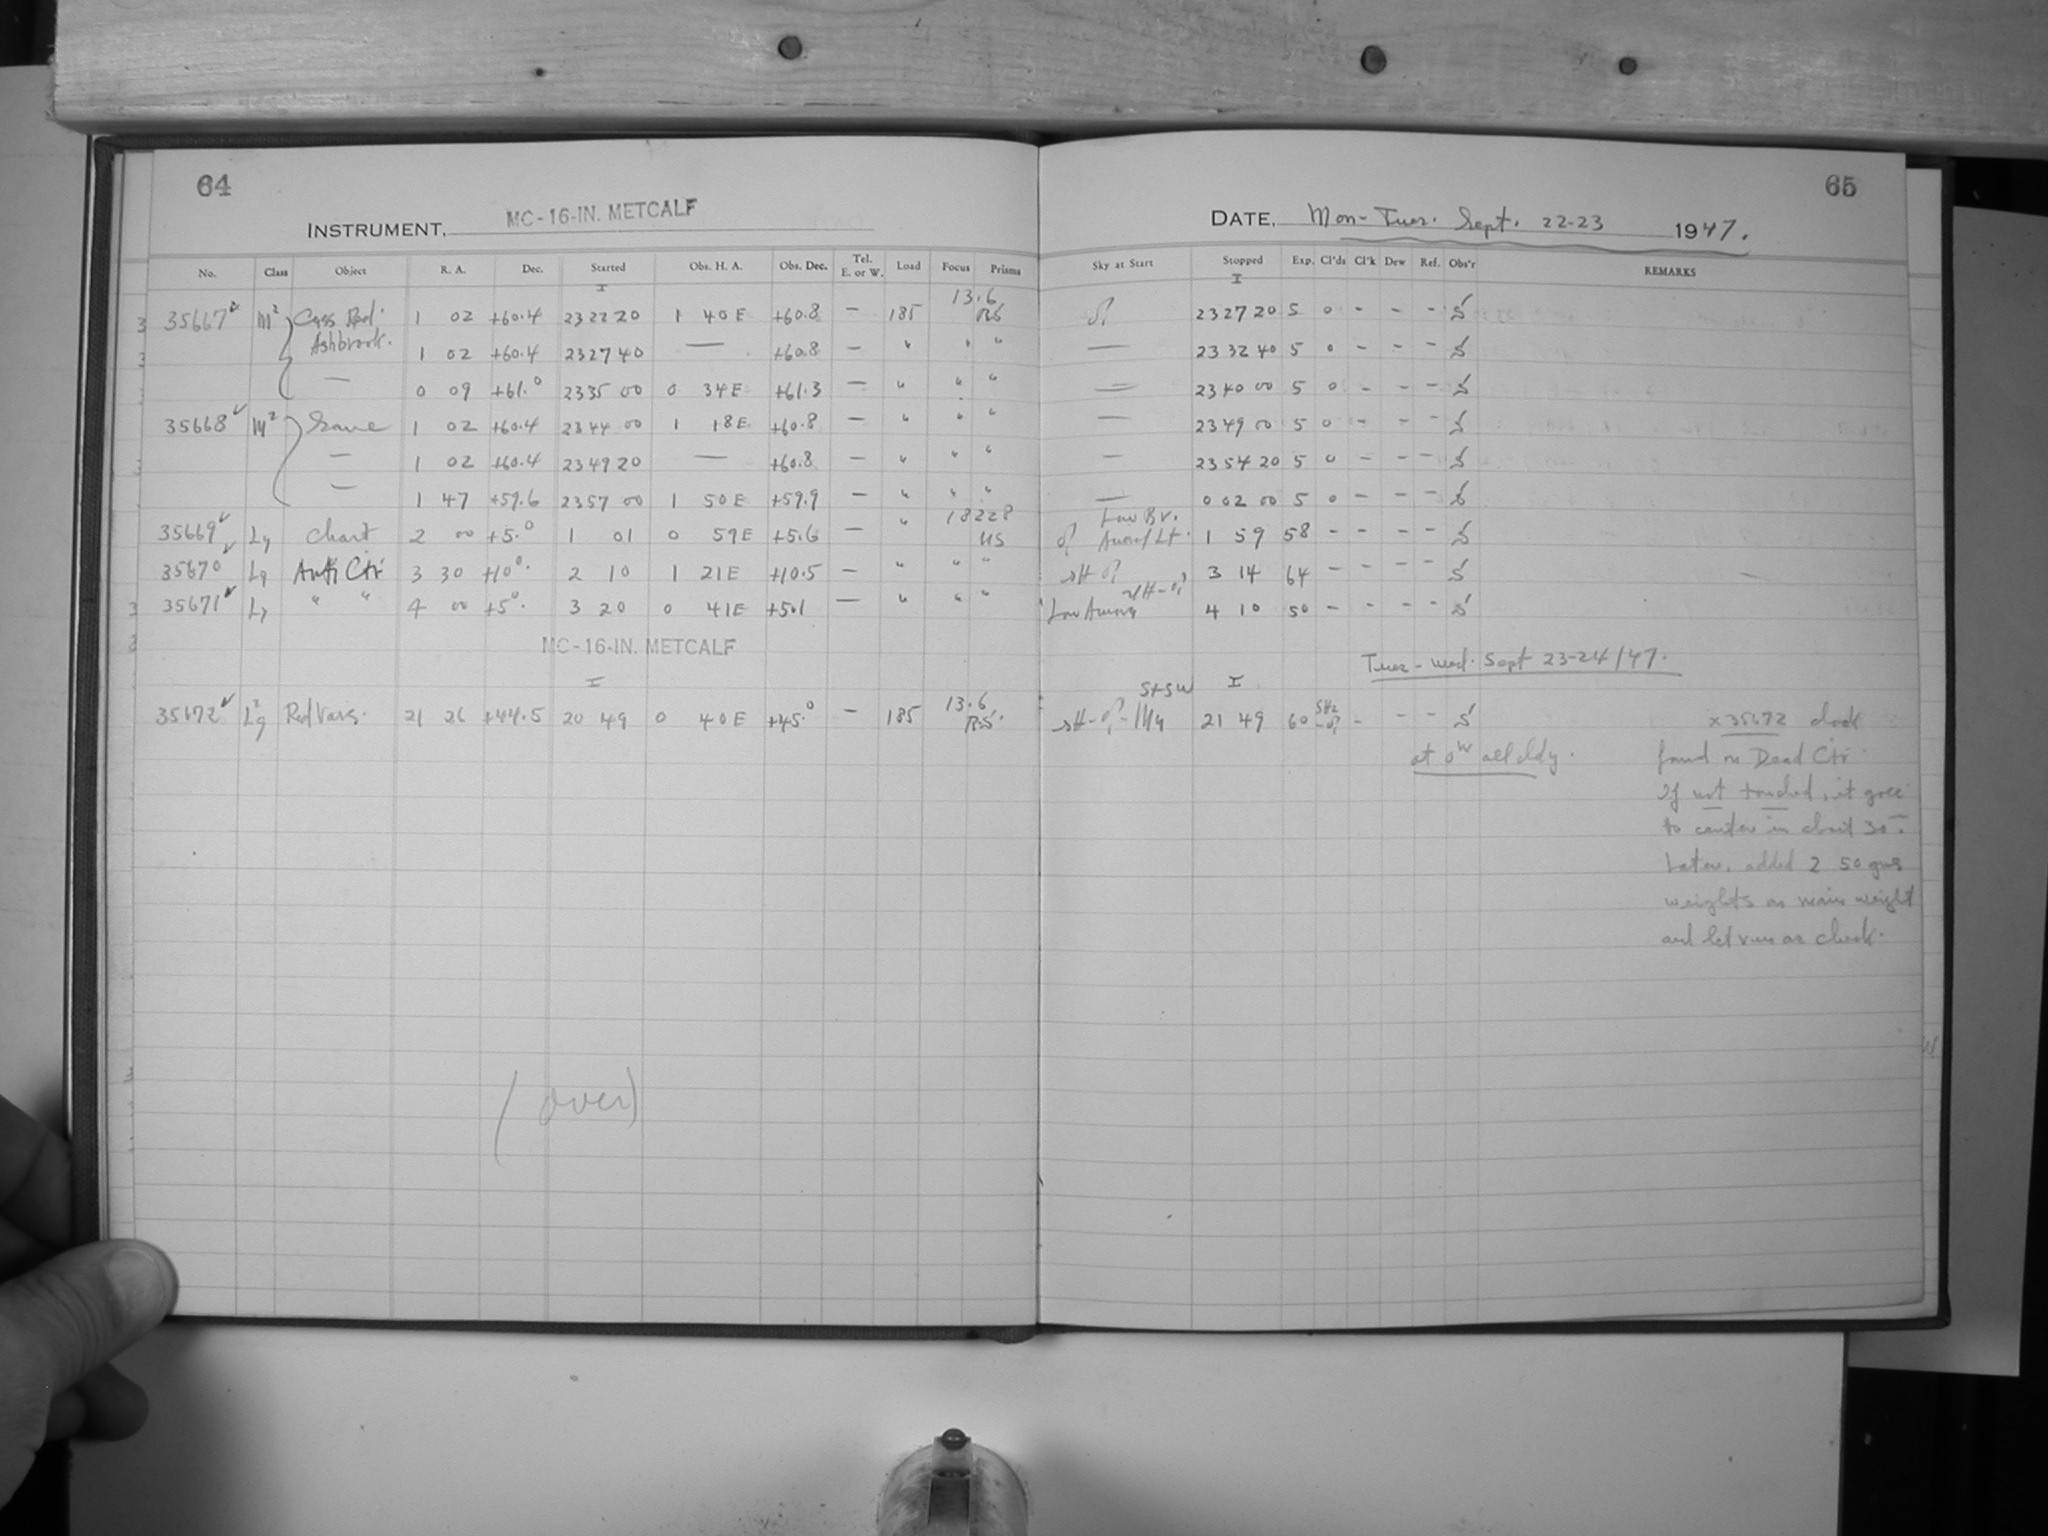 64
INSTRUMENT, MC-16-IN. METCALF
No. Class Object R. A. Dec. Started Obs. H. A. Obs. Dec. Tel. E. or W. Load Focus Prisms
I 13.6
35667 m² Cass Red. 1 02 +60.4 23 22 20 1 40 E +60.8 — 185 RS
Ashbrook. 1 02 +60.4 23 27 40 — +60.8 — " " "
— 0 09 +61.0 23 35 00 0 34 E +61.3 — " " "
35668 m² Same 1 02 +60.4 23 44 00 1 18 E +60.8 — " " "
— 1 02 +60.4 23 49 20 — +60.8 — " " "
— 1 47 +59.6 23 57 00 1 50 E +59.9 — " " "
18228
35669 Lg Chart 2 00 +5.0 1 01 0 59 E +5.6 — " US
35670 Lg Anti Ctr 3 30 +10.0 2 10 1 21 E +10.5 — " " "
35671 Lg " " 4 00 +5.0 3 20 0 41 E +5.1 — " " "
MC-16-IN. METCALF
I 13.6
35672 Lg² Red Vars. 21 26 +44.5 20 49 0 40 E +45.0 — 185 RS.
(over)
65
DATE, Mon-Tues. Sept. 22-23 1947.
Sky at Start Stopped Exp. Cl'ds Cl'k Dew Ref. Obs'r REMARKS
I
23 27 20 5 0 - - - S
— 23 32 40 5 0 - - - S
— 23 40 00 5 0 - - - S
— 23 49 00 5 0 - - - S
— 23 54 20 5 0 - - - S
— 0 02 00 5 0 - - - S
Low Br.
Auroral Lt. 1 59 58 - - - - S
3 14 64 - - - - S
Low Aurora 4 10 50 - - - - S
Tues-Wed. Sept 23-24/47.
S+SW I
21 49 60 - - - S x35672 clock
at 0ᵂ all cldy. found on Dead Ctr
If not touched, it goes
to center in about 30
Later, added 2 50 gms
weights on main weight
and let run as check.